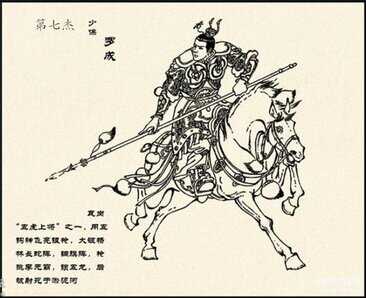 第七杰
少保
罗成
瓦岗
“五虎上将”之一,用五
钩神飞亮银枪,大破杨
林长蛇阵,铜旗阵,枪
挑李元霸,锁五龙,后
被射死于淤泥河